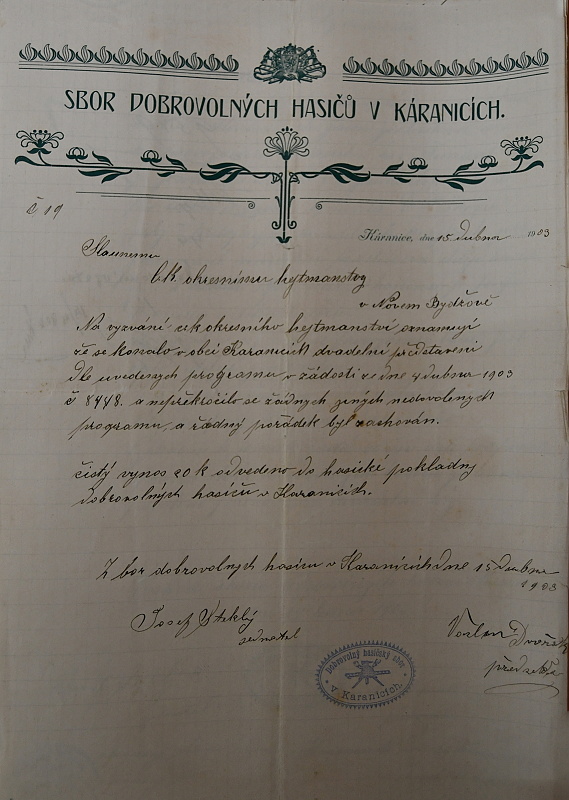 SBOR DOBROVOLNÝCH HASIČŮ V KÁRANICÍCH.
č 19
Káranice, dne 15 dubna 1903
Slavnému
Ck okresnímu hejtmanstvy
v Novém Bydžově
Na vyzvání ck okresního hejtmanství oznamují
že se konalo v obci Karanicích dvadelní představeni
dle uvedenych programu v žádosti ze dne 4 dubna 1903
č 8448. a nepřekročilo se žádnych jiných nedovolenych
programu, a řádný pořádek byl zachován.
čistý vynos 20 k odvedeno do hasické pokladny
dobrovolných hasiču v Karanicích.
Z bor dobrovolnych hasicu v Karanicích dne 15 dubna
1903
Josef Steklý
jednatel
Václav Dvořák
předseda
Dobrovolný hasičský sbor
v Káranicích